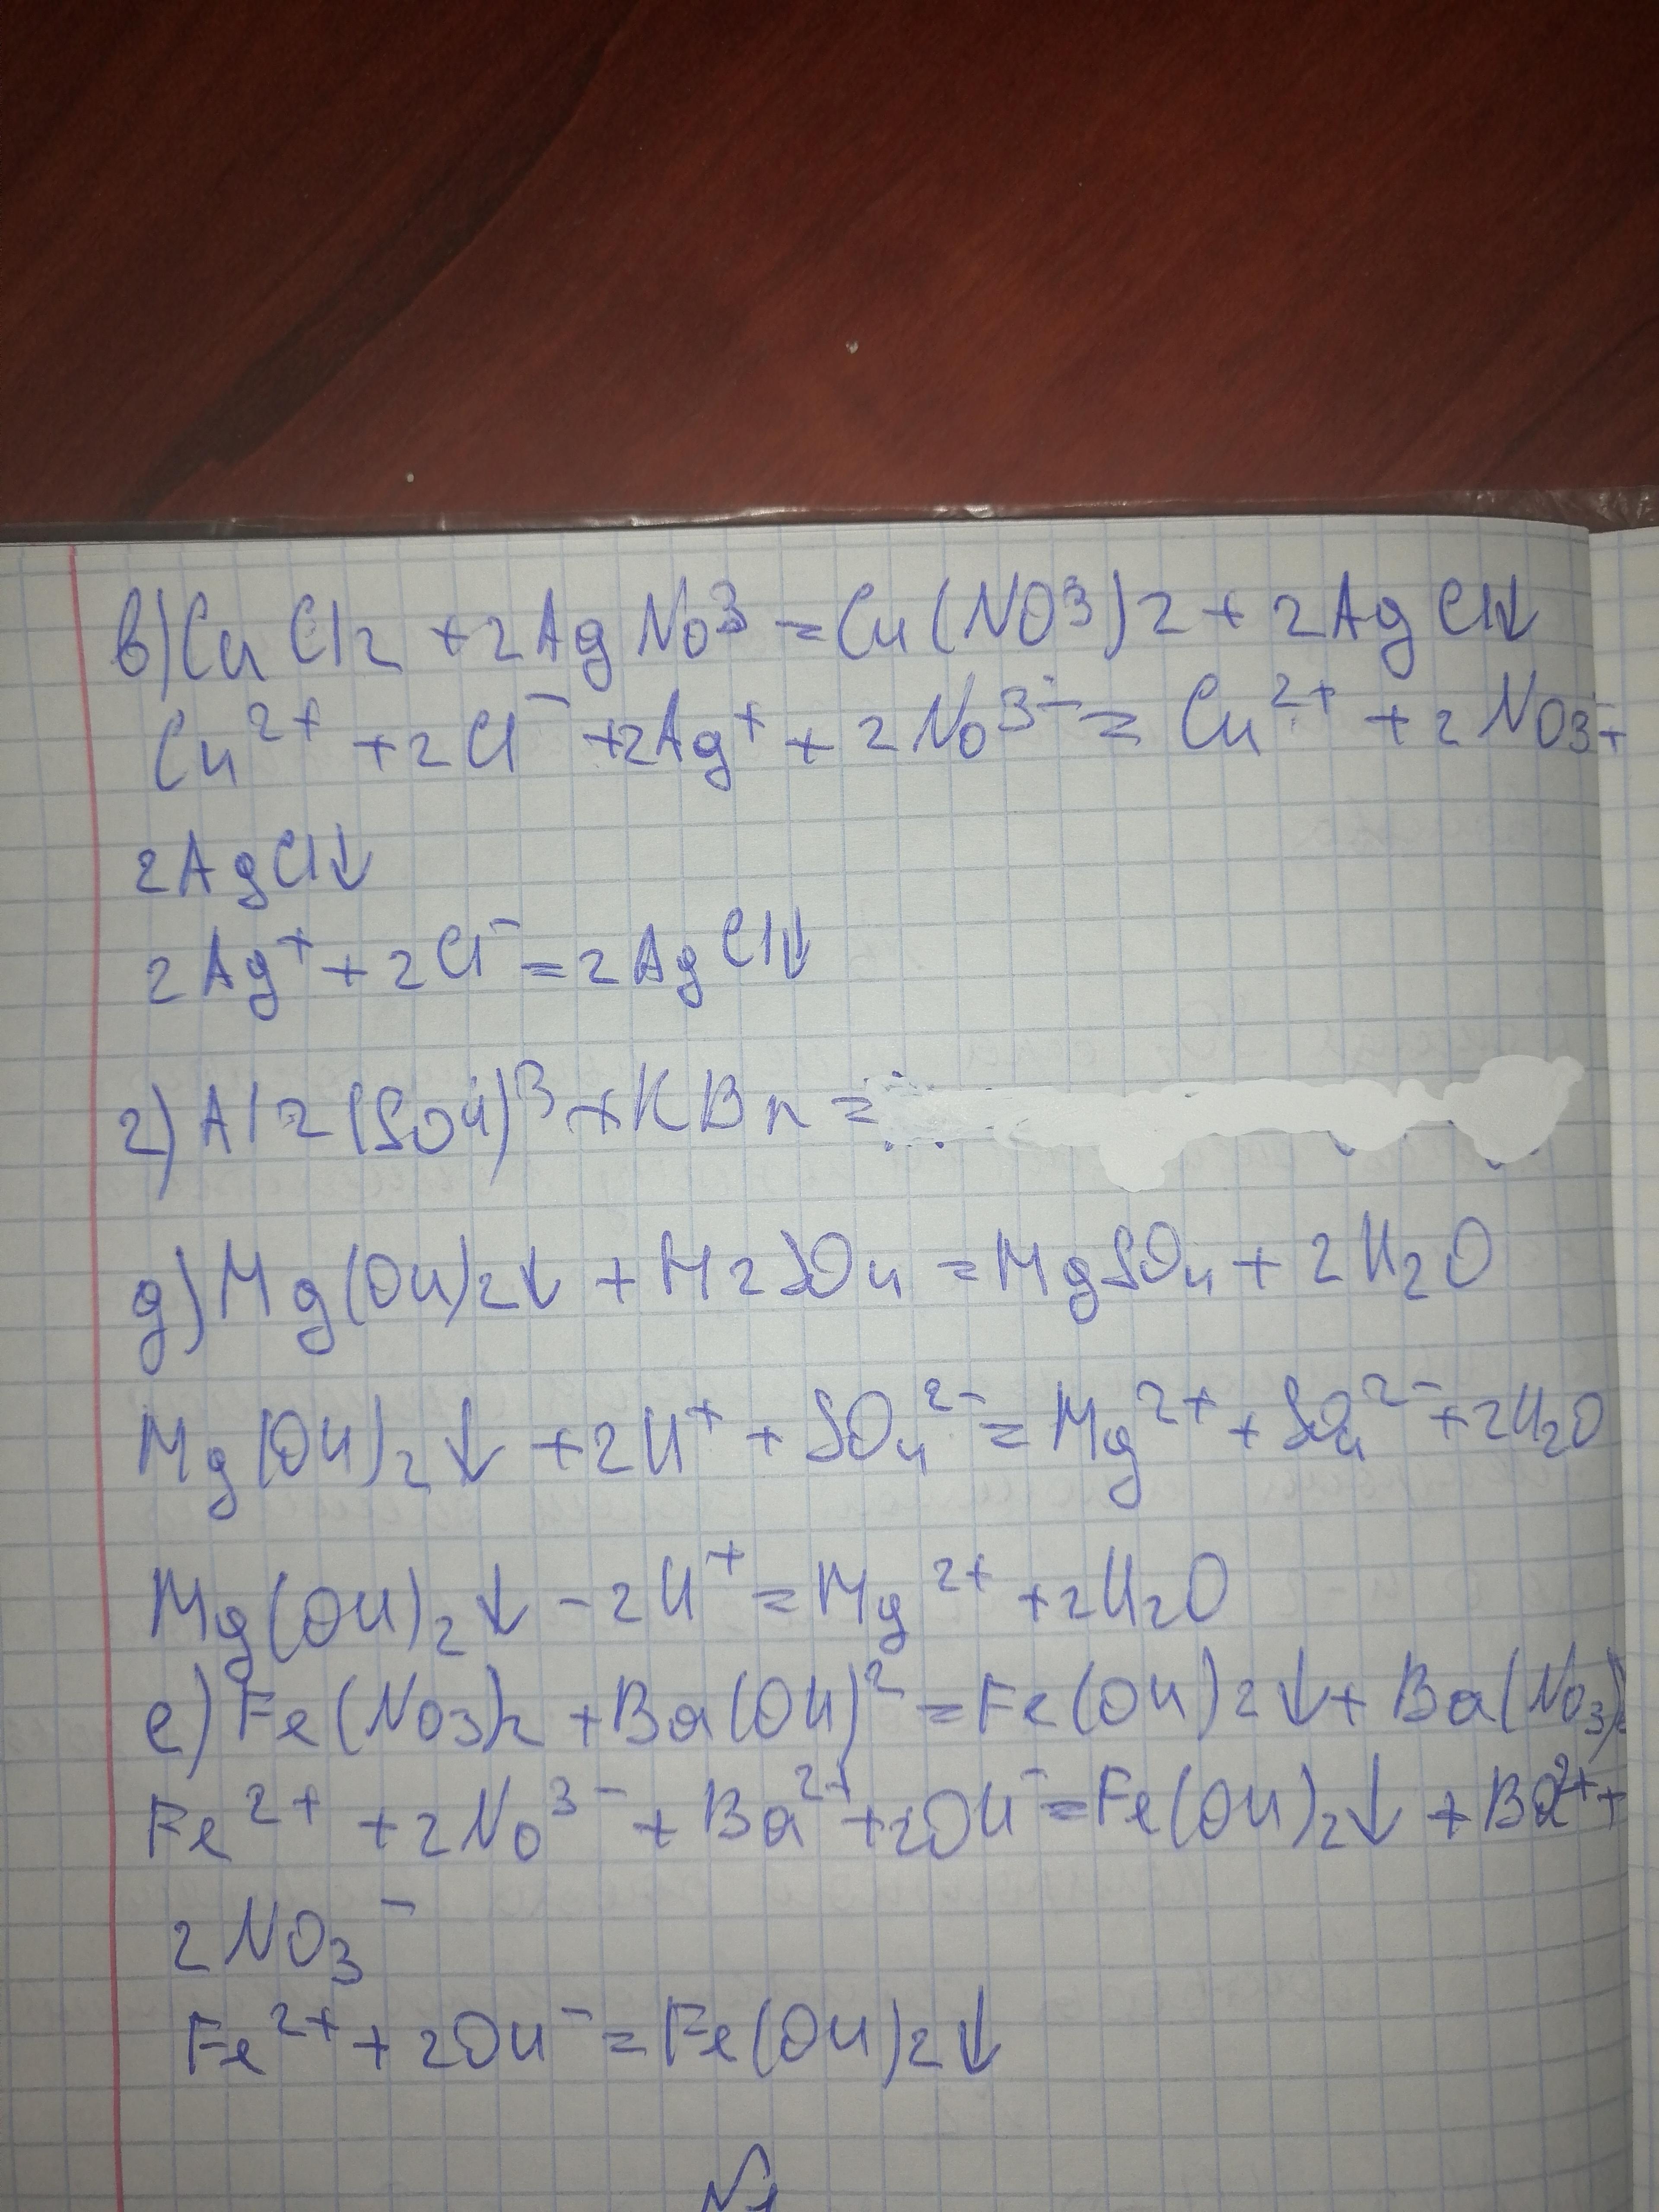 в) CuCl2 + 2AgNO3 = Cu(NO3)2 + 2AgCl↓
Cu²⁺ + 2Cl⁻ + 2Ag⁺ + 2NO3⁻ = Cu²⁺ + 2NO3⁻ +
2AgCl↓
2Ag⁺ + 2Cl⁻ = 2AgCl↓
г) Al2(SO4)3 + KBr =
д) Mg(OH)2↓ + H2SO4 = MgSO4 + 2H2O
Mg(OH)2↓ + 2H⁺ + SO4²⁻ = Mg²⁺ + SO4²⁻ + 2H2O
Mg(OH)2↓ - 2H⁺ = Mg²⁺ + 2H2O
е) Fe(NO3)2 + Ba(OH)2 = Fe(OH)2↓ + Ba(NO3)2
Fe²⁺ + 2NO3⁻ + Ba²⁺ + 2OH⁻ = Fe(OH)2↓ + Ba²⁺ +
2NO3⁻
Fe²⁺ + 2OH⁻ = Fe(OH)2↓